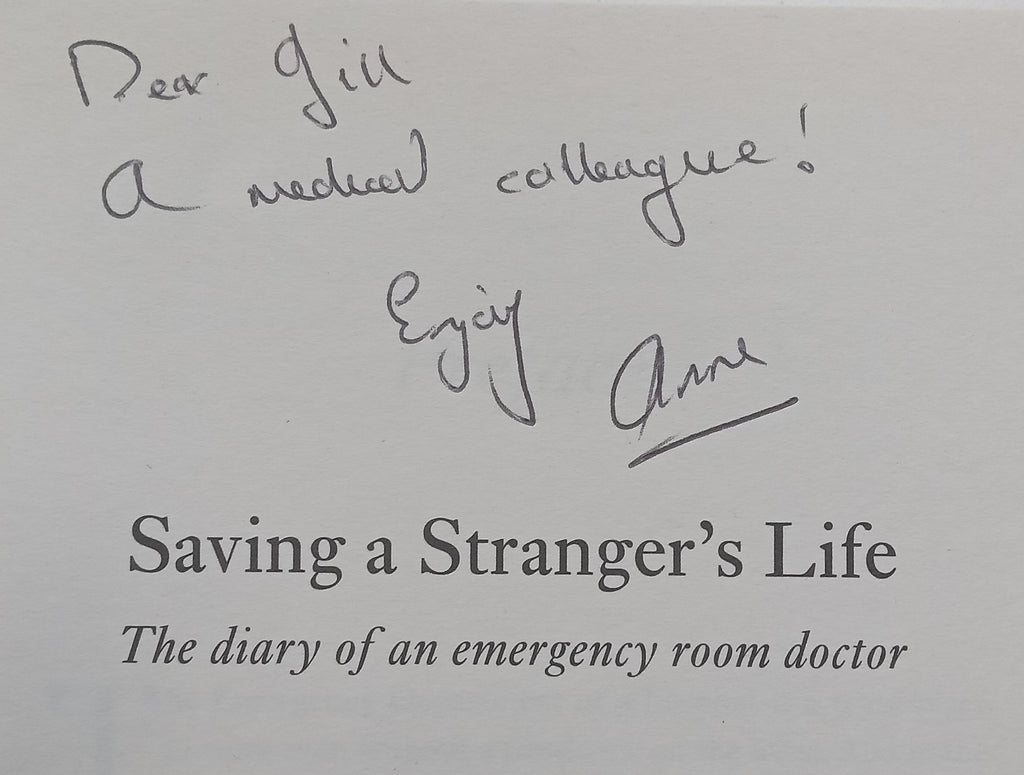 Dear Gill
A medical colleague!
Enjoy
Anne
Saving a Stranger’s Life
The diary of an emergency room doctor